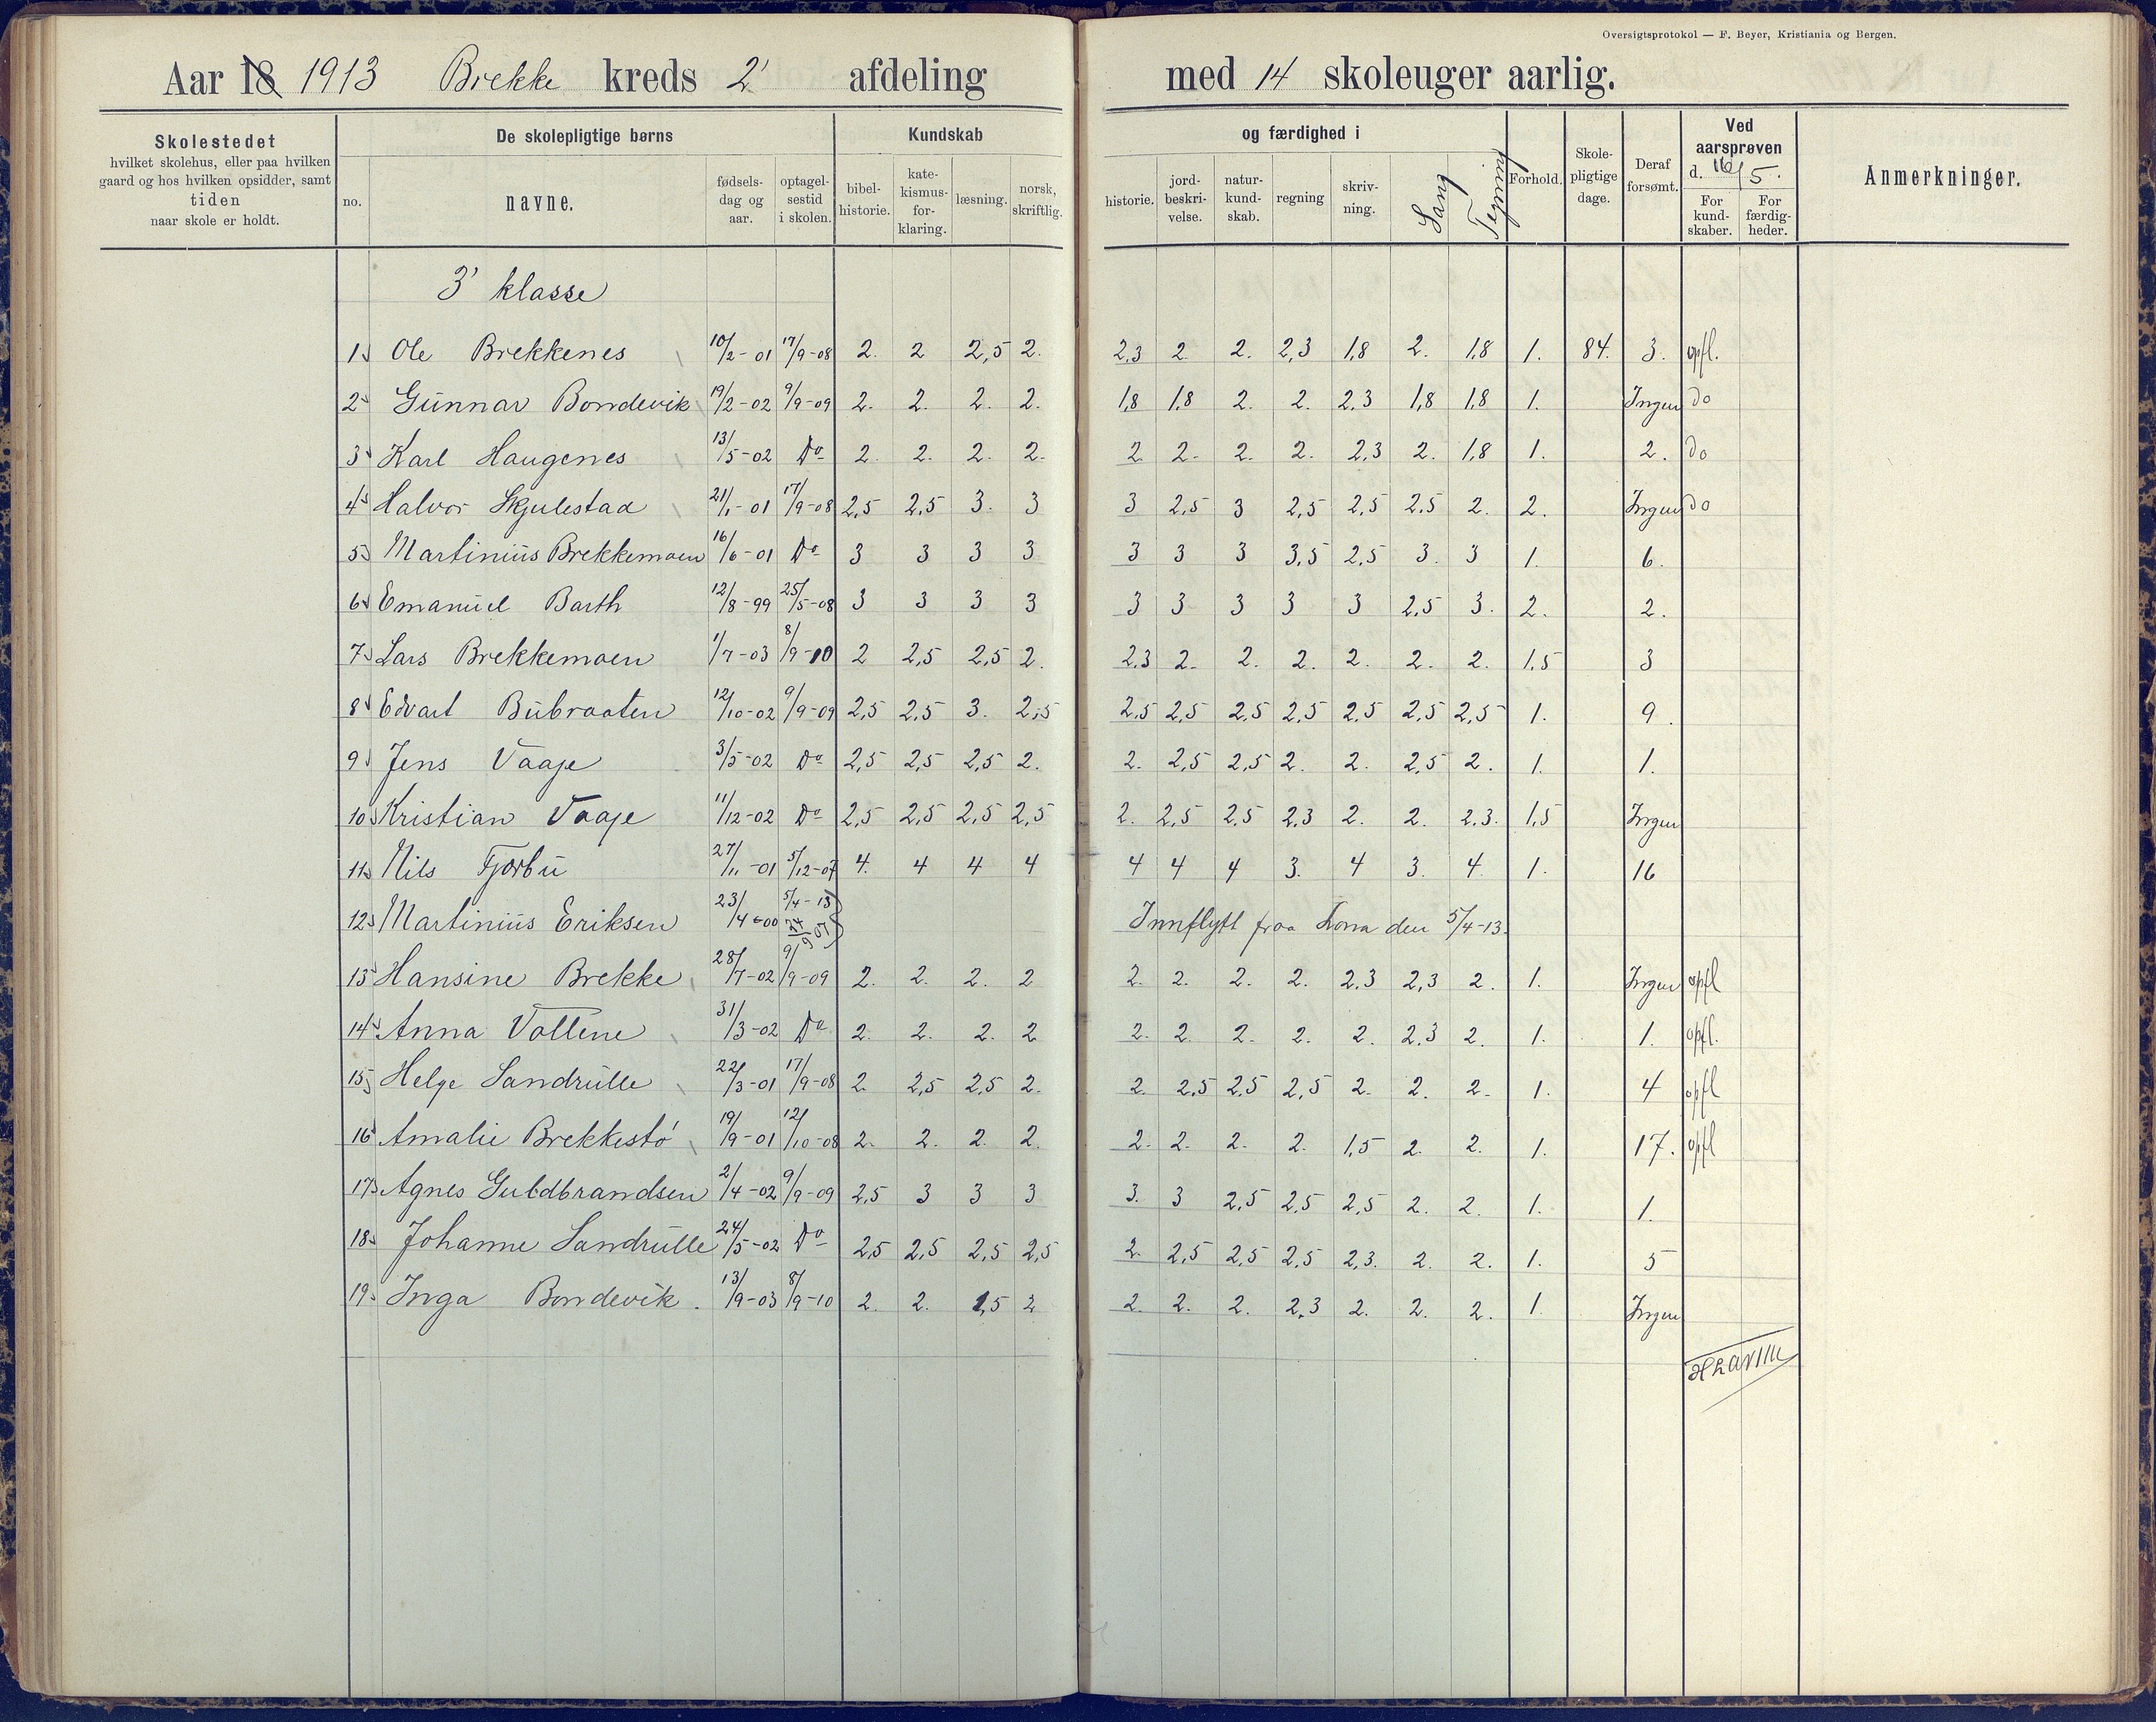 Oversigtsprotokol — F. Beyer, Kristiania og Bergen.
Aar 18 1913 Brekke kreds 2' afdeling med 14 skoleuger aarlig.
Skolestedet
hvilket skolehus, eller paa hvilken
gaard og hos hvilken opsidder, samt
tiden
naar skole er holdt.
De skolepligtige børns
no.
navne.
fødsels-
dag og
aar.
optagel-
sestid
i skolen.
Kundskab og færdighed i
bibel-
historie.
kate-
kismus-
for-
klaring.
læsning.
norsk,
skriftlig.
historie.
jord-
beskri-
velse.
natur-
kund-
skab.
regning
skriv-
ning.
Sang
Tegning
Forhold.
Skole-
pligtige
dage.
Deraf
forsømt.
Ved
aarsprøven
d. 16/5.
For
kund-
skaber.
For
færdig-
heder.
Anmerkninger.
3' klasse
1 Ole Brekkenes 10/2-01 17/9-08 2. 2 2,5 2. 2,3 2. 2. 2,3 1,8 2. 1,8 1. 84. 3. opfl.
2 Gunnar Bondevik 19/2-02 9/9-09 2. 2. 2. 2. 1,8 1,8 2. 2. 2.3 1,8 1,8 1. Ingen do
3 Karl Haugenes 13/5-02 Do 2. 2. 2. 2. 2. 2. 2. 2. 2,3 2. 1,8 1. 2. do
4 Halvor Skjulestad 21/1-01 17/9-08 2,5 2,5 3. 3 3 2,5 3 2,5 2,5 2,5 2. 2. Ingen do
5 Martinius Brekkemoen 16/6-01 Do 3 3 3 3 3 3 3 3,5 2,5 3. 3 1. 6.
6 Emanuel Barth 12/8-99 25/5-08 3 3 3 3 3 3 3 3 3 2,5 3. 2. 2.
7 Lars Brekkemoen 1/7-03 8/9-10 2 2,5 2,5 2. 2,3 2. 2. 2. 2. 2. 2. 1,5 3
8 Edvart Bubraaten 12/10-02 9/9-09 2,5 2,5 3. 2,5 2,5 2,5 2,5 2,5 2,5 2,5 2,5 1. 9.
9 Jens Vaaje 3/5-02 Do 2,5 2,5 2,5 2. 2. 2,5 2,5 2. 2. 2,5 2. 1. 1.
10 Kristian Vaaje 11/12-02 Do 2,5 2,5 2,5 2,5 2. 2,5 2,5 2.3 2. 2. 2.3. 1,5 Ingen
11 Nils Fjorbu 27/11-01 5/12-07 4. 4 4 4 4 4 4 3. 4 3. 4. 1. 16
12 Martinius Eriksen 23/4-00 5/4-13 Innflytt fraa den 5/4-13.
13 Hansine Brekke 28/7-02 9/9-09 2. 2. 2. 2 2. 2. 2. 2. 2.3 2,3 2. 1. Ingen opfl
14 Anna Vollene 31/3-02 Do 2. 2. 2. 2 2. 2. 2. 2. 2. 2.3 2. 1. 1. opfl.
15 Helge Sandrulle 22/3-01 17/9-08 2. 2,5 2,5 2. 2. 2.5 2,5 2,5 2. 2. 2. 1. 4 opfl
16 Amalie Brekkestø 19/9-01 12/10-08 2. 2. 2. 2. 2. 2. 2. 2. 1,5 2. 2. 1. 17. opfl
17 Agnes Guldbrandsen 2/4-02 9/9-09 2,5 3 3 3 3. 3 2,5 2,5 2,5 2. 2. 1. 1.
18 Johanne Sandrulle 24/5-02 Do 2,5 2,5 2,5 2,5 2. 2,5 2,5 2,5 2,3. 2. 2. 1. 5
19 Inga Bondevik. 13/9-03 8/9-10 2. 2. 1,5 2 2. 2. 2. 2,3 2. 2. 2. 1. Ingen